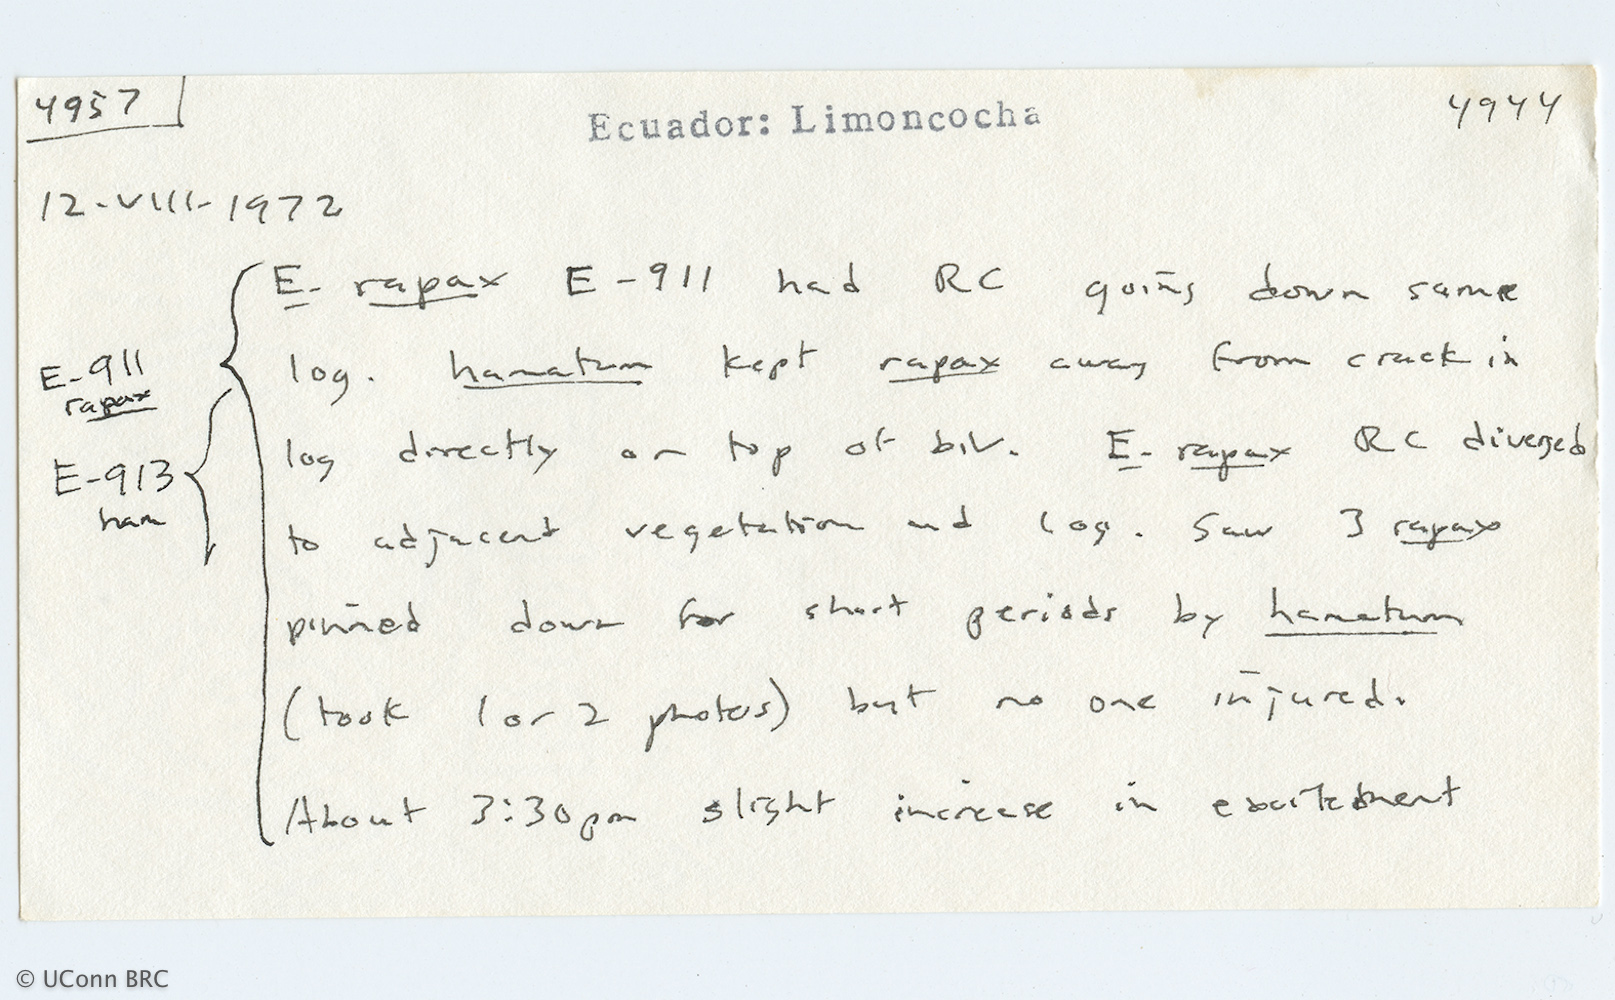 4957
Ecuador: Limoncocha
4944
12-VIII-1972
E-911
rapax
E-913
ham
E. rapax E-911 had RC going down same
log. hamatum kept rapax away from crack in
log directly on top of biv. E. rapax RC diverged
to adjacent vegetation and log. Saw 3 rapax
pinned down for short periods by hamatum
(took 1 or 2 photos) but no one injured.
About 3:30pm slight increase in excitement
© UConn BRC